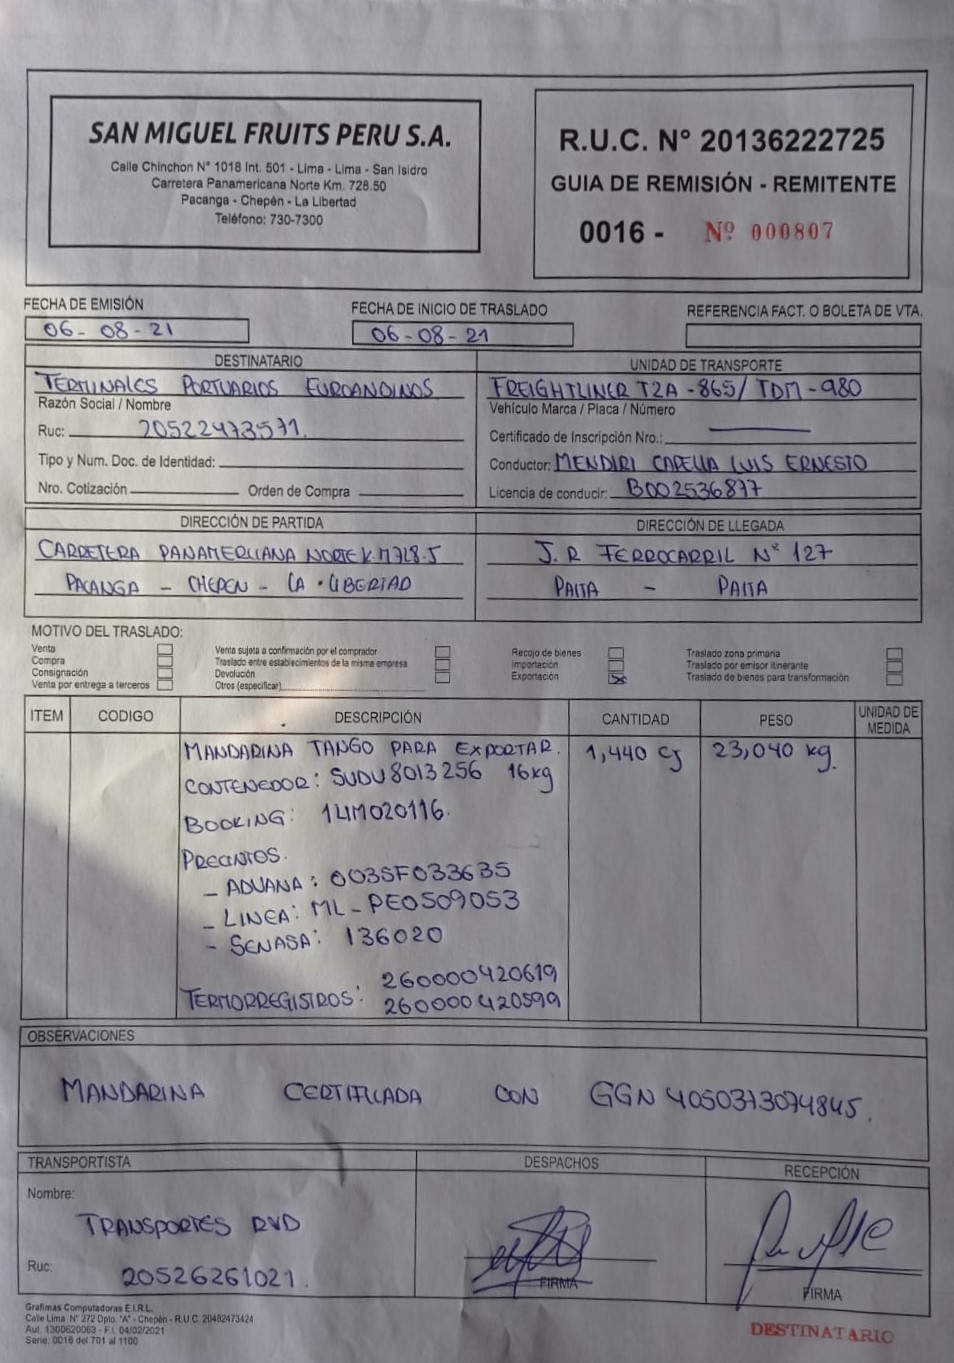 SAN MIGUEL FRUITS PERU S.A.
Calle Chinchon N° 1018 Int. 501 - Lima - Lima - San Isidro
Carretera Panamericana Norte Km. 728.50
Pacanga - Chepén - La Libertad
Teléfono: 730-7300
R.U.C. N° 20136222725
GUIA DE REMISIÓN - REMITENTE
0016 - Nº 000807
FECHA DE EMISIÓN
06-08-21
FECHA DE INICIO DE TRASLADO
06-08-21
REFERENCIA FACT. O BOLETA DE VTA.
DESTINATARIO
TERMINALES PORTUARIOS EUROANDINOS
Razón Social / Nombre
Ruc: 20522473571.
Tipo y Num. Doc. de Identidad:
Nro. Cotización Orden de Compra
UNIDAD DE TRANSPORTE
FREIGHTLINER T2A-865/ TDM-980
Vehículo Marca / Placa / Número
Certificado de Inscripción Nro.:
Conductor: MENDIRI CAPELLA LUIS ERNESTO
Licencia de conducir: B002536877
DIRECCIÓN DE PARTIDA
CARRETERA PANAMERICANA NORTE K.M728.5
PACANGA - CHEPEN - LA LIBERTAD
DIRECCIÓN DE LLEGADA
J.R FERROCARRIL N° 127
PAITA - PAITA
MOTIVO DEL TRASLADO:
Venta
Compra
Consignación
Venta por entrega a terceros
Venta sujeta a confirmación por el comprador
Traslado entre establecimientos de la misma empresa
Devolución
Otros (especificar)
Recojo de bienes
Importación
Exportación X
Traslado zona primaria
Traslado por emisor itinerante
Traslado de bienes para transformación
ITEM CODIGO DESCRIPCIÓN CANTIDAD PESO UNIDAD DE MEDIDA
MANDARINA TANGO PARA EXPORTAR. 1,440 cj 23,040 kg.
CONTENEDOR: SUDU8013256 16kg
BOOKING: 1LIM020116.
PRECINTOS.
- ADUANA: 003SF033635
- LINEA: ML-PE0509053
- SENASA: 136020
TERMORREGISTROS: 260000420619
260000420599
OBSERVACIONES
MANDARINA CERTIFICADA CON GGN 4050373074845.
TRANSPORTISTA
Nombre:
TRANSPORTES RVD
Ruc: 20526261021.
DESPACHOS
FIRMA
RECEPCIÓN
FIRMA
Grafimas Computadoras E.I.R.L.
Calle Lima N° 272 Dpto. "A" - Chepén - R.U.C. 20482473424
Aut. 1300620063 - F.I. 04/02/2021
Serie: 0016 del 701 al 1100
DESTINATARIO